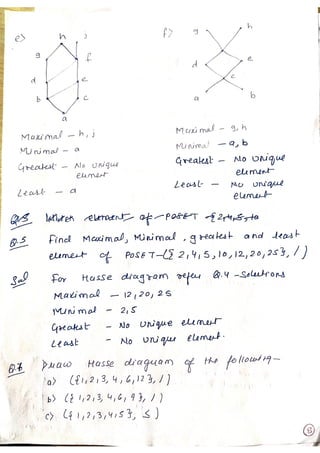 e>
h
j
g
f
d
e
b
c
a
Maximal - h, j
Minimal - a
Greatest - No unique
element
Least - a
f>
g
h
d
e
c
a
b
Maximal - g, h
Minimal - a, b
Greatest - No unique
element
Least - No unique
element
Q.5 Find Maximal, Minimal, greatest and least
element of POSET-({2,4,5,10,12,20,25}, /)
Sol For Hasse diagram refer Q.4 - Solutions
Maximal - 12, 20, 25
Minimal - 2,5
Greatest - No unique element
Least - No unique element.
Q.6 Draw Hasse diagram of the following -
a> ({1,2,3,4,6,12}, /)
b> ({1,2,3,4,6,9}, /)
c> ({1,2,3,4,5}, ≤)